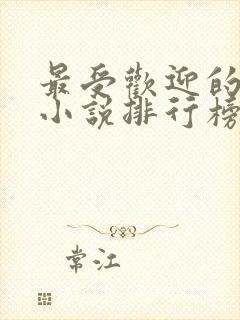 最受歡迎的
小說排行榜
常江